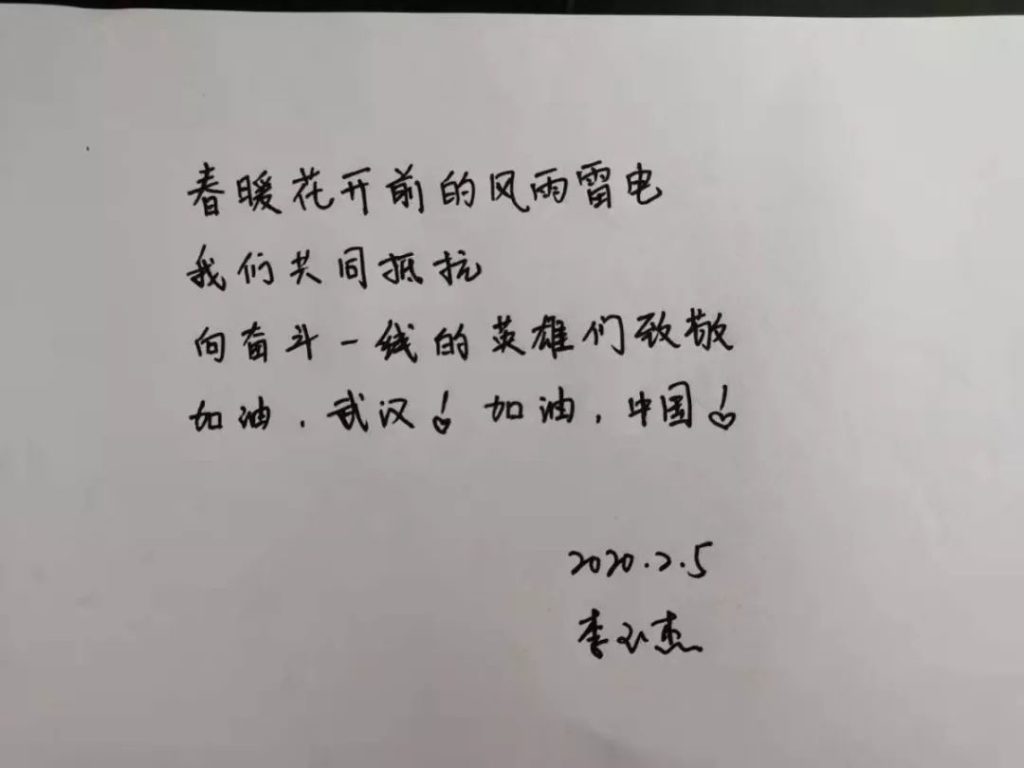 春暖花开前的风雨雷电
我们共同抵抗
向奋斗一线的英雄们致敬
加油，武汉！加油，中国！
2020.2.5
李玉杰